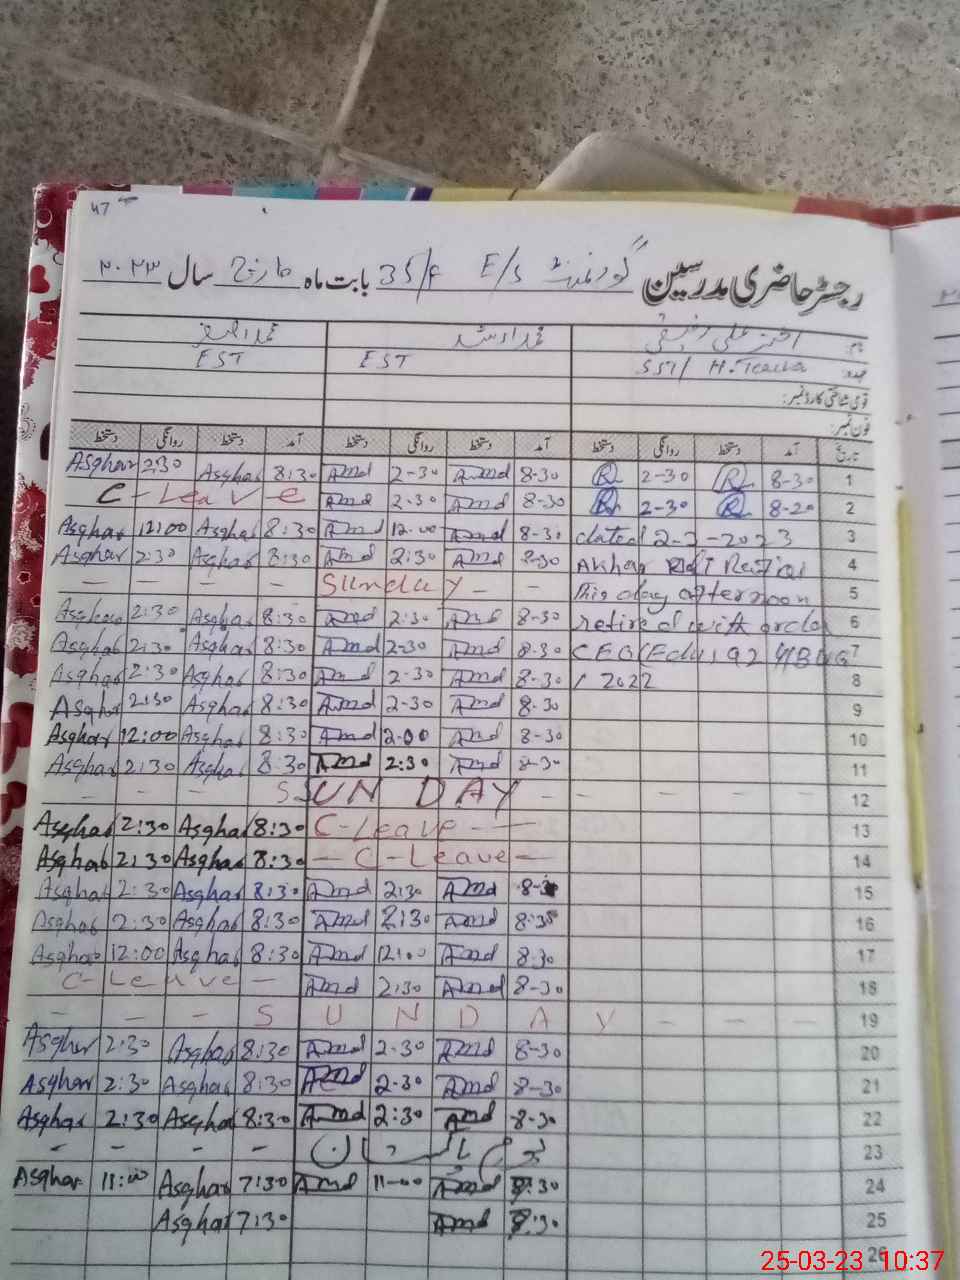 47
رجسٹر حاضری مدرسین گورنمنٹ E/S 35/F بابت ماہ مارچ سال ۲۰۲۳
نام: محمد ارشد
عہدہ: SST/ H.Teacher EST EST
قومی شناختی کارڈ نمبر:
فون نمبر:
تاریخ آمد دستخط روانگی دستخط آمد دستخط روانگی دستخط آمد دستخط روانگی دستخط
Asghar 2:30 Asghar 8:30 Amd 2-30 Amd 8-30 R 2-30 R 8-30 1
C-Leave Amd 2-30 Amd 8-30 R 2-30 R 8-20 2
Asghar 12:00 Asghar 8:30 Amd 12-00 Amd 8-30 dated 2-3-2023 3
Asghar 2:30 Asghar 8:30 Amd 2:30 Amd 8-30 Akhar 4
- - - - Sunday - - This day afternoon 5
Asghar 2:30 Asghar 8:30 Amd 2:30 Amd 8-30 retired with order 6
Asghar 2:30 Asghar 8:30 Amd 2-30 Amd 8-30 CEO(Edu) 7
Asghar 2:30 Asghar 8:30 Amd 2-30 Amd 8-30 / 2022 8
Asghar 2:30 Asghar 8:30 Amd 2-30 Amd 8-30 9
Asghar 12:00 Asghar 8:30 Amd 2-00 Amd 8-30 10
Asghar 2:30 Asghar 8:30 Amd 2:30 Amd 8-30 11
- - - SUN DAY - - - - - 12
Asghar 2:30 Asghar 8:30 C-Leave - - 13
Asghar 2:30 Asghar 8:30 - C-Leave - 14
Asghar 2:30 Asghar 8:30 Amd 2:30 Amd 8-30 15
Asghar 2:30 Asghar 8:30 Amd 2:30 Amd 8:30 16
Asghar 12:00 Asghar 8:30 Amd 12:00 Amd 8:30 17
C-Leave - Amd 2:30 Amd 8-30 18
- - - S U N D A Y - - - 19
Asghar 2:30 Asghar 8:30 Amd 2-30 Amd 8-30 20
Asghar 2:30 Asghar 8:30 Amd 2-30 Amd 8-30 21
Asghar 2:30 Asghar 8:30 Amd 2:30 Amd 8-30 22
- - - - یوم پاکستان 23
Asghar 11:00 Asghar 7:30 Amd 11-00 Amd 7:30 24
Asghar 7:30 Amd 7:30 25
26
25-03-23 10:37